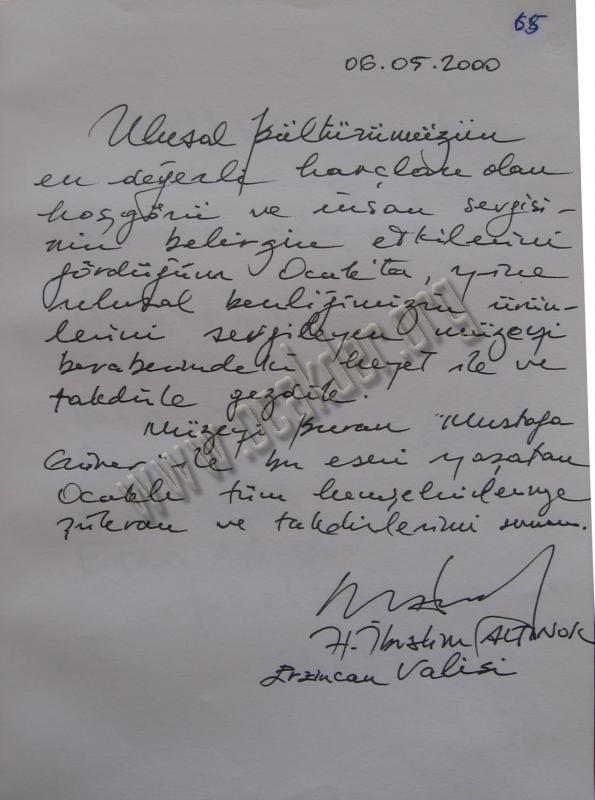 65
06.05.2000
Ulusal kültürümüzün
en değerli harçları olan
hoşgörü ve insan sevgisi-
nin belirgin etkilerini
gördüğüm Ocak'ta, yine
ulusal benliğimizin ürün-
lerini sergileyen müzeyi
beraberimdeki heyet ile ve
takdirle gezdik.
Müzeyi kuran Mustafa
Güner ile bu eseri yaşatan
Ocaklı tüm hemşehrilerime
şükran ve takdirlerimi sunarım.
H. İbrahim ALTINOK
Erzincan Valisi
www.ocakder.org